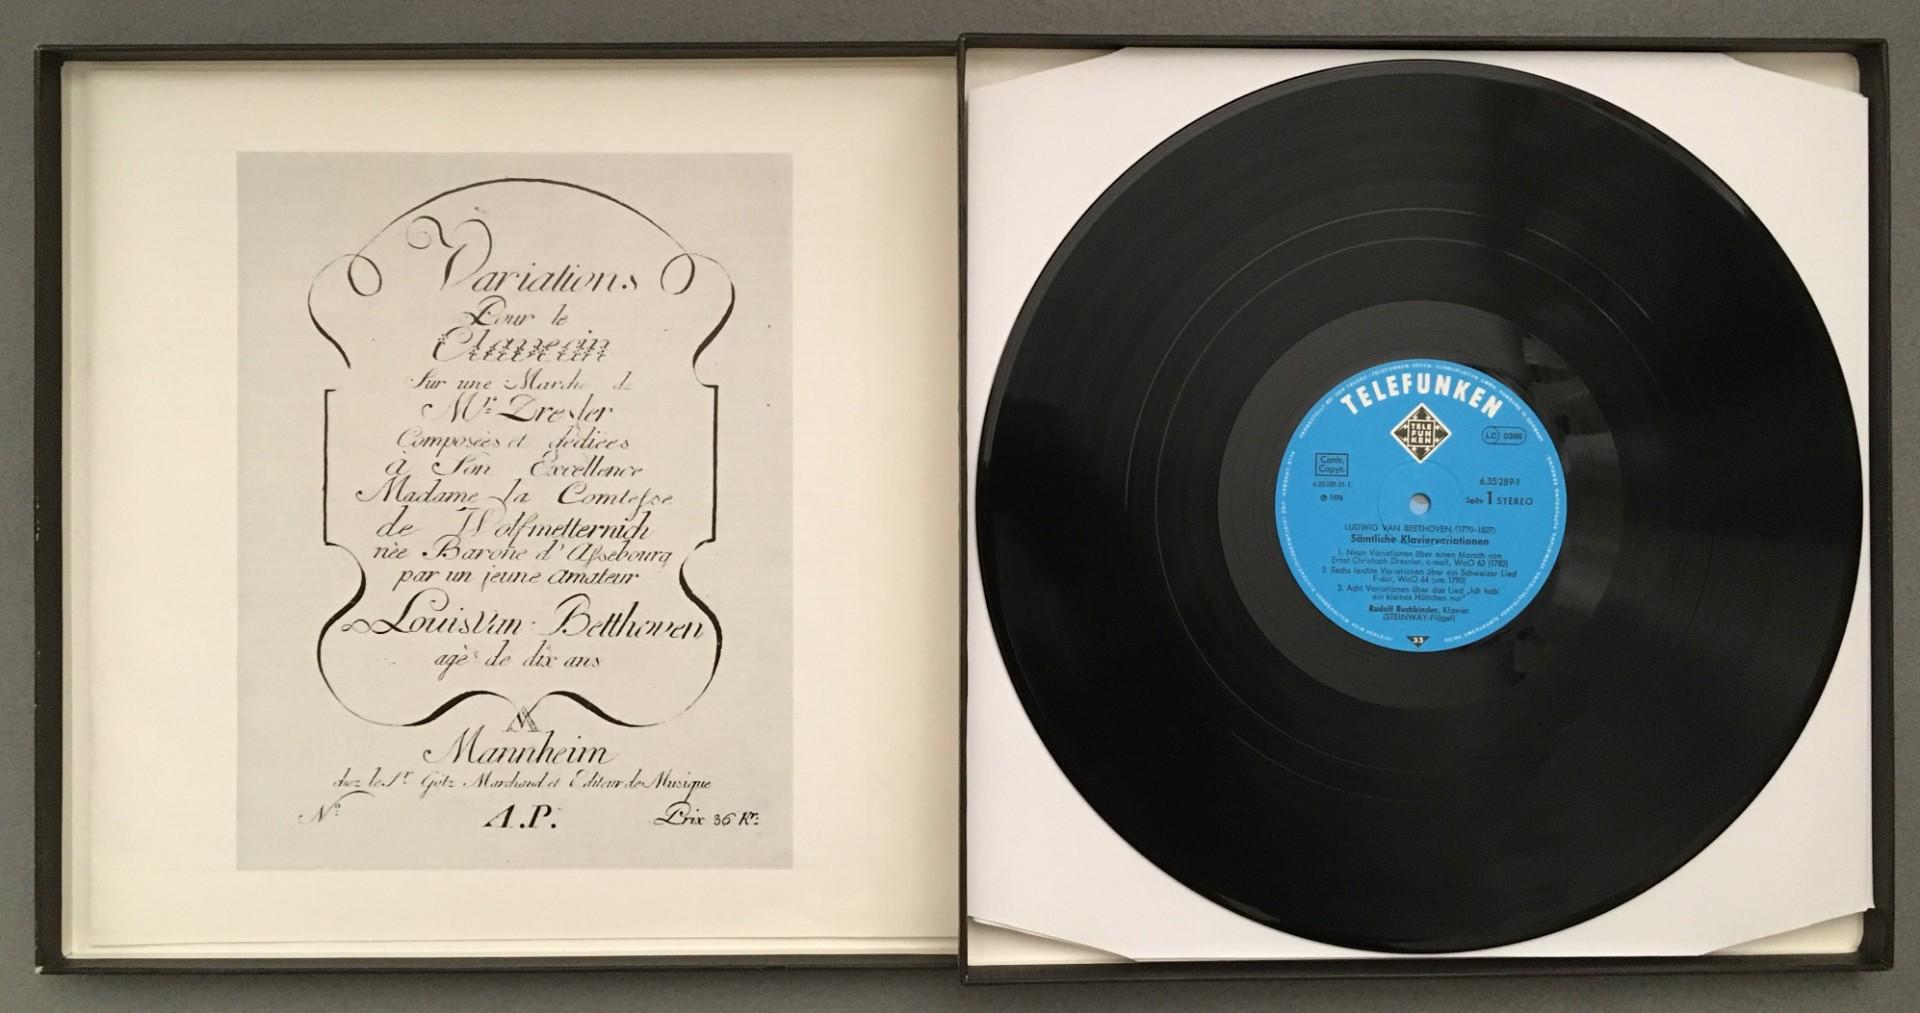 Variations
Pour le
Clavecin
Sur une Marche de
Mr. Dresler
Composées et dediées
à Son Excellence
Madame la Comtesse
de Wolfmetternich
née Barone d'Assebourg
par un jeune amateur
Louis van Betthoven
agè de dix ans
Mannheim
chez le Sr. Götz Marchand et Editeur de Musique
No. A.P. Prix 36 Kr.
TELEFUNKEN
TELE
FUN
KEN
LC 0366
Contr.
Copyr.
6.35289-1
Seite 1 STEREO
LUDWIG VAN BEETHOVEN (1770-1827)
Sämtliche Klaviervariationen
1. Neun Variationen über einen Marsch von
Ernst Christoph Dressler, c-moll, WoO 63 (1782)
2. Sechs leichte Variationen über ein Schweizer Lied
F-dur, WoO 64 (um 1790)
3. Acht Variationen über das Lied „Ich hab'
ein kleines Hüttchen nur"
Rudolf Buchbinder, Klavier
(STEINWAY-Flügel)
33